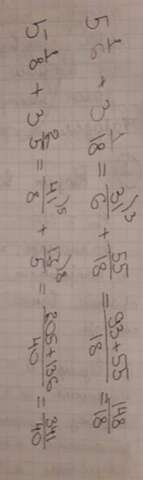 5 1/6 + 3 1/18 = 31/6 )3 + 55/18 = 93+55/18 = 148/18
5 1/8 + 3 2/5 = 41/8 )5 + 17/5 )8 = 205+136/40 = 341/40